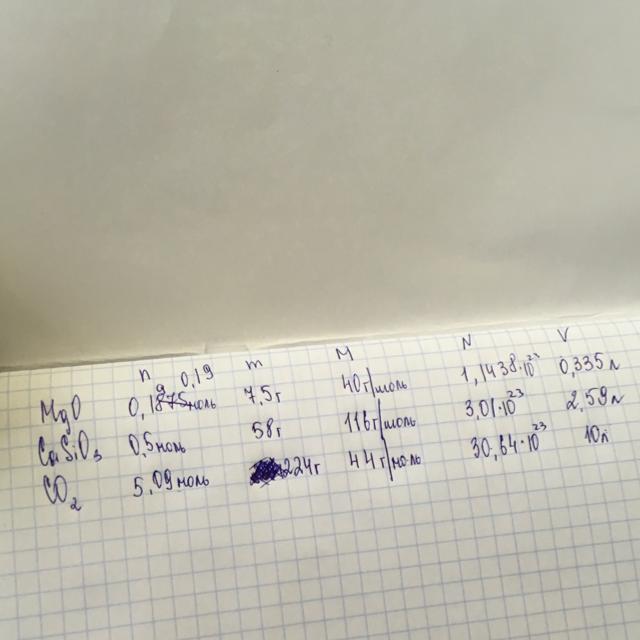 n m M N V
MgO 0,19 моль 7,5г 40г/моль 1,1438·10²³ 0,335л
CaSiO₃ 0,5моль 58г 116г/моль 3.01·10²³ 2,59л
CO₂ 5,09моль 224г 44г/моль 30,64·10²³ 10л